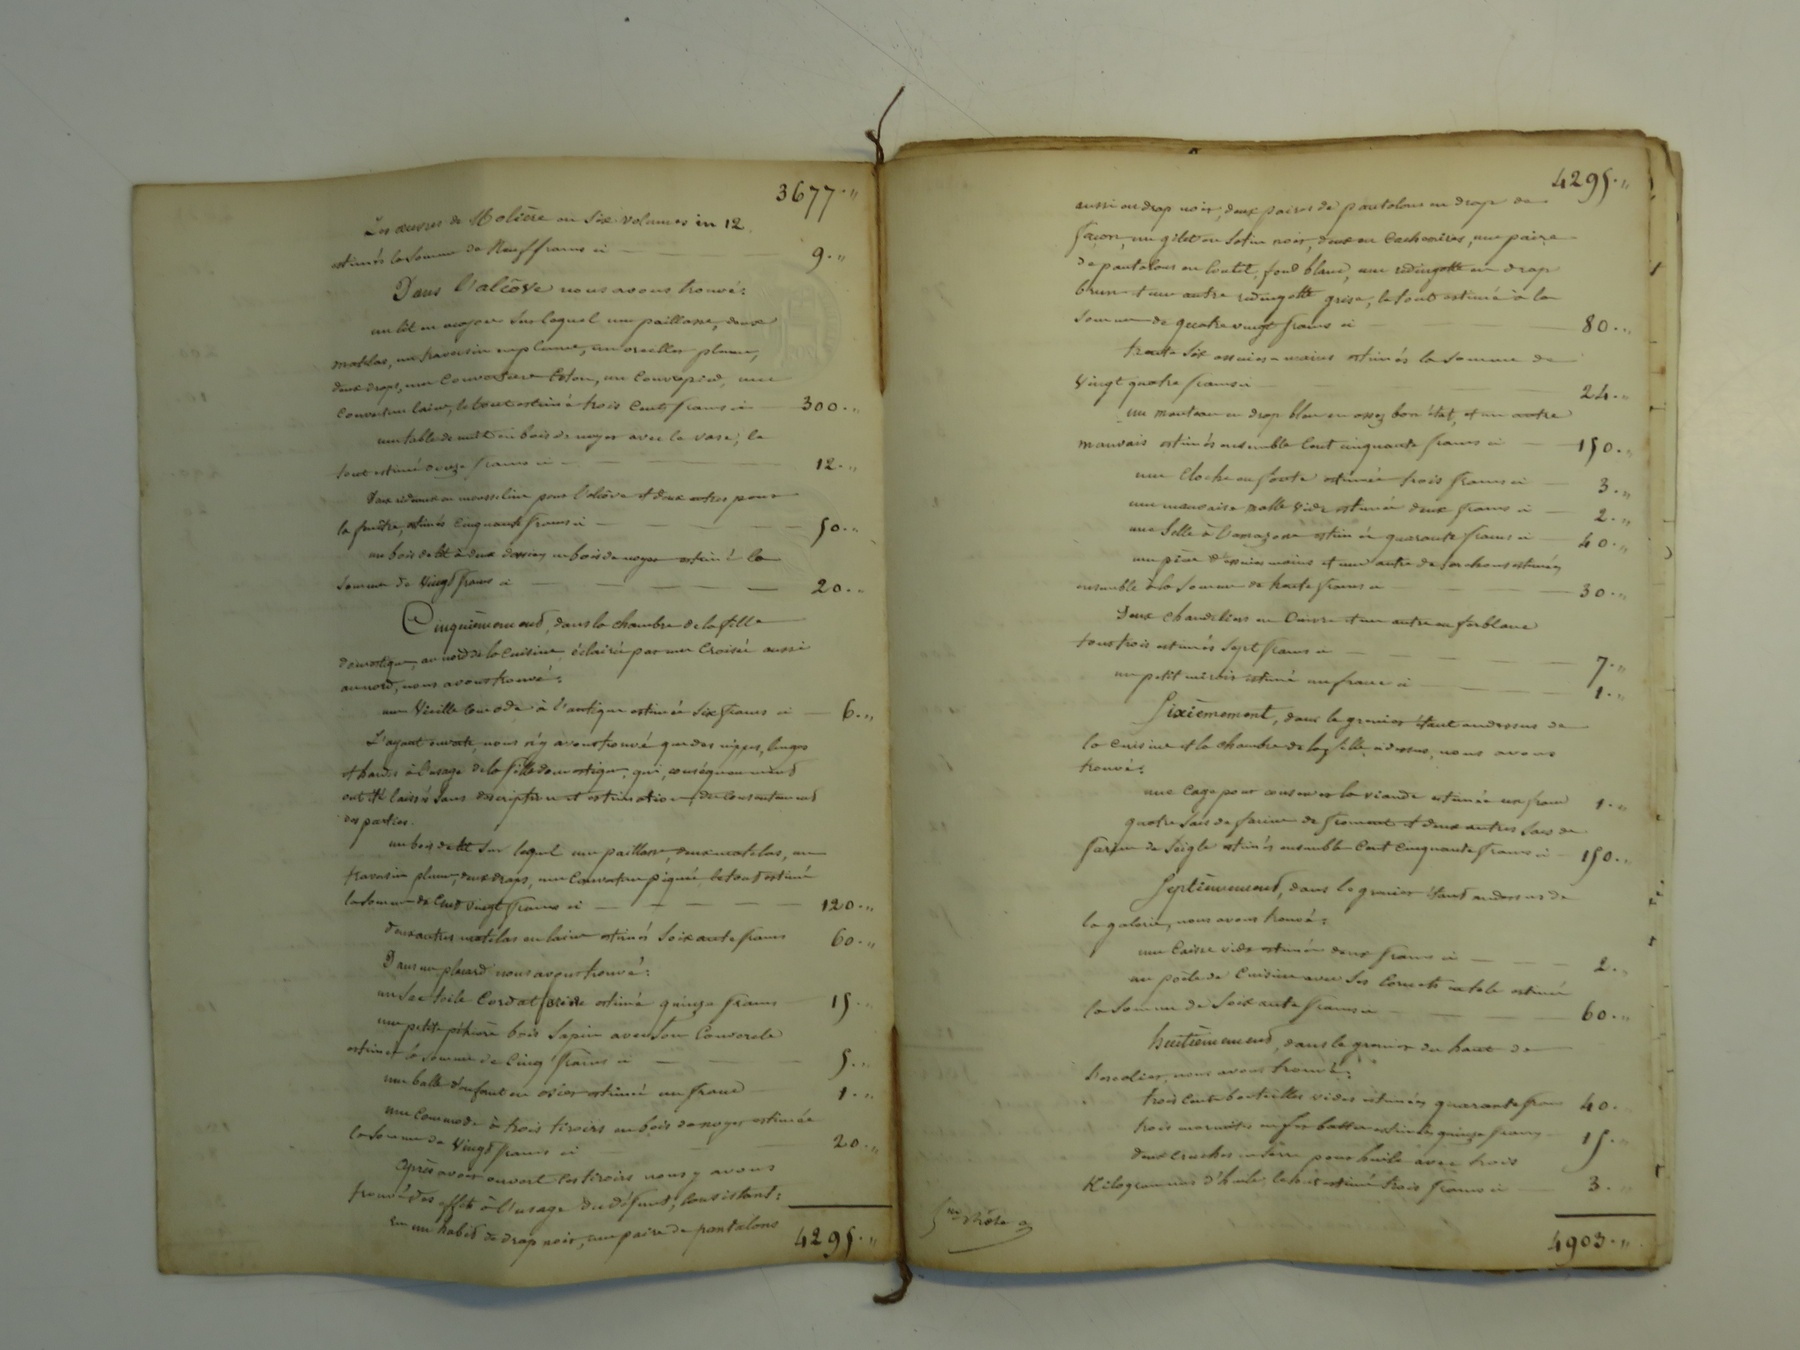 3677 . "
Les œuvres de Molière en Six volumes in 12
estimés la somme de Neuf francs ci — 9 . "
Dans l'alcôve nous avons trouvé :
un lit en acajou sur lequel une paillasse, deux
matelas, un traversin en plume, un oreiller plume,
deux draps, une Couverture Coton, un Couvrepied, une
Couverture laine, le tout estimé trois Cents francs ci — 300 . "
une table de nuit en bois de noyer avec le vase, le
tout estimé douze francs ci — 12 . "
Deux rideaux en mousseline pour l'alcôve et deux autres pour
la fenêtre, estimés Cinquante francs ci — 50 . "
un bois de lit à deux dossiers en bois de noyer estimé la
somme de Vingt francs ci — 20 . "
Cinquièmement, dans la chambre de la fille
domestique, au nord de la Cuisine, éclairée par une Croisée aussi
au nord, nous avons trouvé :
une Vieille Comode à l'antique estimée Six francs ci — 6 . "
L'ayant ouverte, nous n'y avons trouvé que des nippes, linges
et hardes à l'usage de la fille domestique, qui, conséquemment
ont été laissés sans description et estimation, du Consentement
des parties.
un bois de lit sur lequel une paillasse, deux matelas, un
traversin plume, deux draps, une Couverture piquée, le tout estimé
la somme de Cent vingt francs ci — 120 . "
deux autres matelas en laine estimés Soixante francs 60 . "
Dans un placard nous avons trouvé :
un Sac toile Cordat estimé quinze francs 15 . "
une petite bois Sapin avec son Couvercle
estimée la somme de Cinq francs ci — 5 . "
une balle d'enfant en osier estimée un franc 1 . "
une Commode à trois tiroirs en bois de noyer estimée
la Somme de Vingt francs ci — 20 . "
Après avoir ouvert les tiroirs nous y avons
trouvé des effets à l'usage du défunt, Consistant :
En un habit de drap noir, une paire de pantalons
4295 . "
4295 . "
aussi en drap noir, deux paires de pantalons en drap de
façon, un gilet en Satin noir, deux en Cachemires, une paire
de pantalons en Coutil, fond blanc, une redingotte en drap
brun et une autre redingotte grise, le tout estimé à la
somme de quatre vingt francs ci — 80 . "
trente Six essuies-mains estimés la somme de
Vingt quatre francs ci — 24 . "
un manteau en drap bleu en assez bon état, et un autre
mauvais estimés ensemble Cent cinquante francs ci — 150 . "
une Cloche en fonte estimée trois francs ci — 3 . "
une mauvaise malle vide estimée deux francs ci — 2 . "
une Selle à l'amazone estimée quarante francs ci — 40 . "
une pièce d'essuies mains et une autre de torchons estimées
ensemble à la Somme de trente francs ci — 30 . "
Deux Chandeliers en Cuivre et un autre en ferblanc
tous trois estimés Sept francs ci — 7 . "
un petit miroir estimé un franc ci — 1 . "
Sixièmement, dans le grenier étant audessus de
la Cuisine et la chambre de la fille, nous avons
trouvé :
une Cage pour conserver la viande estimée un franc 1 . "
quatre Sacs de farine de froment et deux autres Sacs de
farine de Seigle estimés ensemble Cent Cinquante francs ci — 150 . "
Septièmement, dans le grenier étant audessus de
la galerie, nous avons trouvé :
une Caisse vide estimée deux francs ci — 2 . "
un poële de Cuisine avec ses Cornets en tole estimé
la Somme de Soixante francs ci — 60 . "
huitièmement, dans le grenier du haut de
l'escalier, nous avons trouvé :
trois Cents bouteilles vides estimées quarante francs 40 . "
trois marmites en fer battu estimées quinze francs 15 . "
deux Cruches en terre pour huile avec trois
Kilogrammes d'huile, le tout estimé trois francs ci — 3 . "
4903 . "